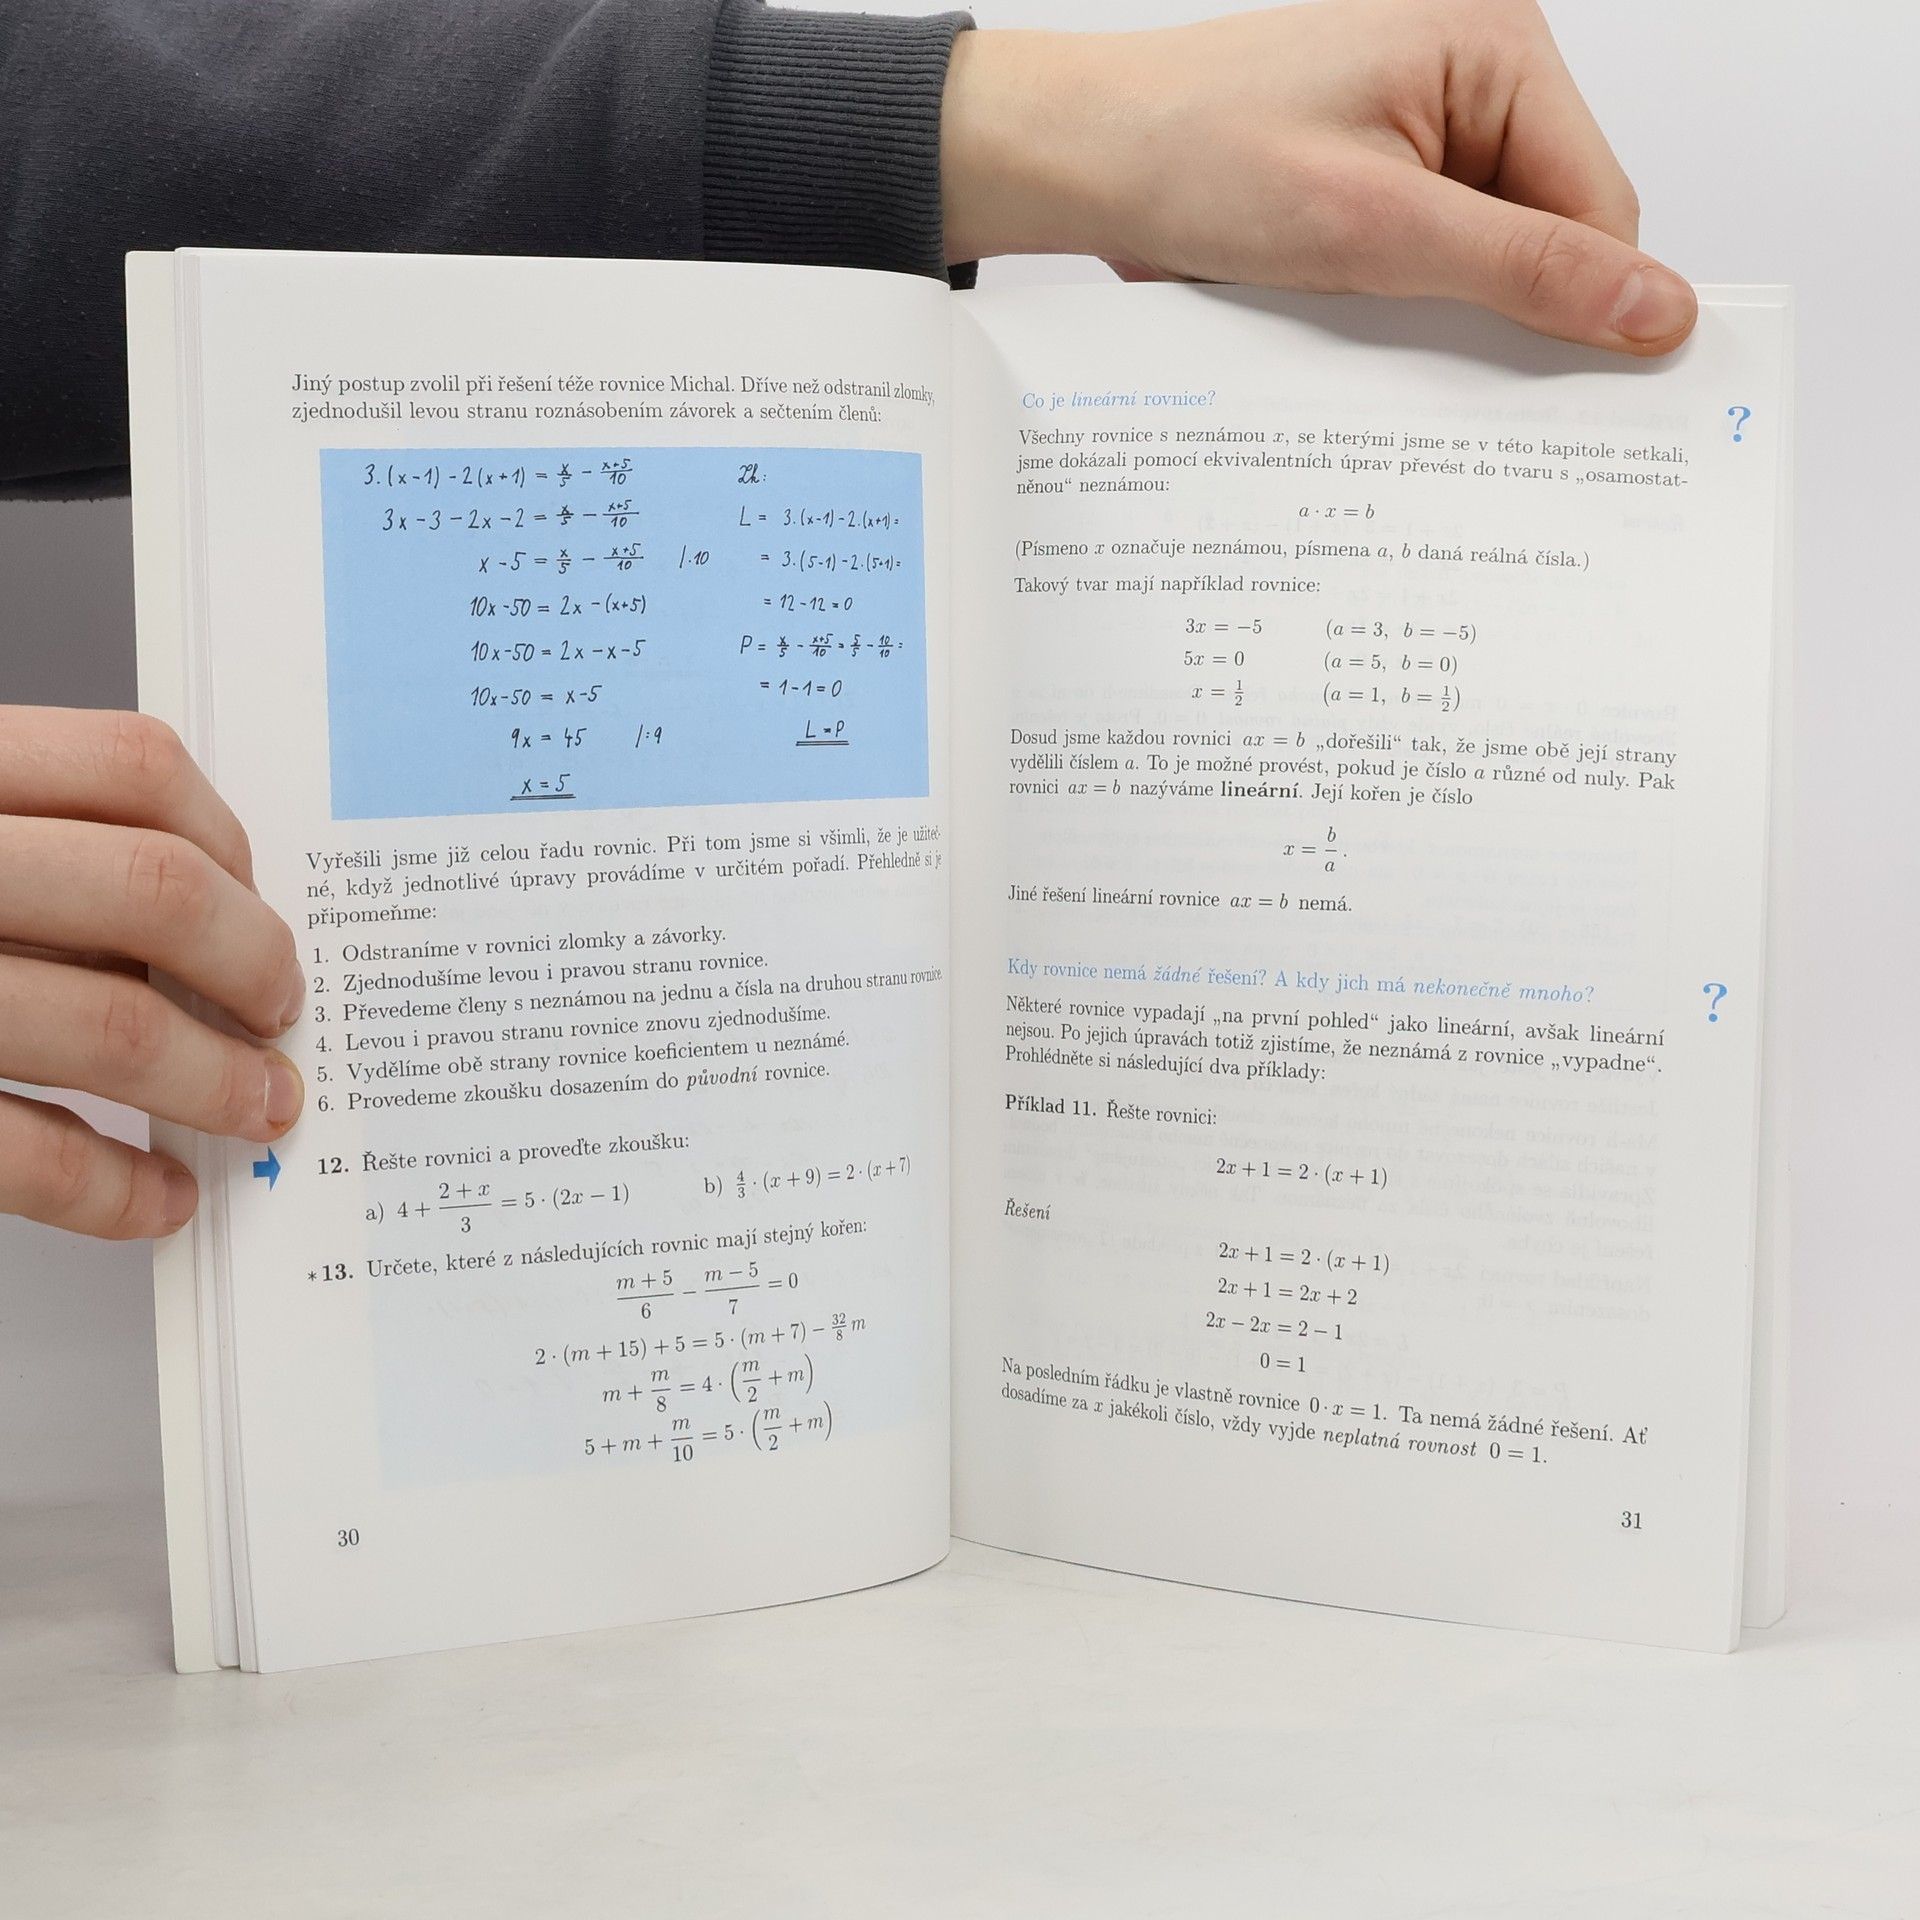 Jiný postup zvolil při řešení téže rovnice Michal. Dříve než odstranil zlomky,
zjednodušil levou stranu roznásobením závorek a sečtením členů:
3.(x-1) - 2(x+1) = x/5 - (x+5)/10
3x - 3 - 2x - 2 = x/5 - (x+5)/10
x - 5 = x/5 - (x+5)/10 /.10
10x - 50 = 2x - (x+5)
10x - 50 = 2x - x - 5
10x - 50 = x - 5
9x = 45 /:9
x = 5
Zk:
L = 3.(x-1) - 2.(x+1) =
= 3.(5-1) - 2.(5+1) =
= 12 - 12 = 0
P = x/5 - (x+5)/10 = 5/5 - 10/10 =
= 1 - 1 = 0
L = P
Vyřešili jsme již celou řadu rovnic. Při tom jsme si všimli, že je užiteč-
né, když jednotlivé úpravy provádíme v určitém pořadí. Přehledně si je
připomeňme:
1. Odstraníme v rovnici zlomky a závorky.
2. Zjednodušíme levou i pravou stranu rovnice.
3. Převedeme členy s neznámou na jednu a čísla na druhou stranu rovnice.
4. Levou i pravou stranu rovnice znovu zjednodušíme.
5. Vydělíme obě strany rovnice koeficientem u neznámé.
6. Provedeme zkoušku dosazením do původní rovnice.
12. Řešte rovnici a proveďte zkoušku:
a) 4 + (2 + x)/3 = 5 · (2x − 1) b) 4/3 · (x + 9) = 2 · (x + 7)
*13. Určete, které z následujících rovnic mají stejný kořen:
(m + 5)/6 − (m − 5)/7 = 0
2 · (m + 15) + 5 = 5 · (m + 7) − 32/8 m
m + m/8 = 4 · (m/2 + m)
5 + m + m/10 = 5 · (m/2 + m)
30
Co je lineární rovnice?
?
Všechny rovnice s neznámou x, se kterými jsme se v této kapitole setkali,
jsme dokázali pomocí ekvivalentních úprav převést do tvaru s „osamostat-
něnou“ neznámou:
a · x = b
(Písmeno x označuje neznámou, písmena a, b daná reálná čísla.)
Takový tvar mají například rovnice:
3x = −5 (a = 3, b = −5)
5x = 0 (a = 5, b = 0)
x = 1/2 (a = 1, b = 1/2)
Dosud jsme každou rovnici ax = b „dořešili“ tak, že jsme obě její strany
vydělili číslem a. To je možné provést, pokud je číslo a různé od nuly. Pak
rovnici ax = b nazýváme lineární. Její kořen je číslo
x = b/a.
Jiné řešení lineární rovnice ax = b nemá.
Kdy rovnice nemá žádné řešení? A kdy jich má nekonečně mnoho?
?
Některé rovnice vypadají „na první pohled“ jako lineární, avšak lineární
nejsou. Po jejich úpravách totiž zjistíme, že neznámá z rovnice „vypadne“.
Prohlédněte si následující dva příklady:
Příklad 11. Řešte rovnici:
2x + 1 = 2 · (x + 1)
Řešení
2x + 1 = 2 · (x + 1)
2x + 1 = 2x + 2
2x − 2x = 2 − 1
0 = 1
Na posledním řádku je vlastně rovnice 0 · x = 1. Ta nemá žádné řešení. Ať
dosadíme za x jakékoli číslo, vždy vyjde neplatná rovnost 0 = 1.
31